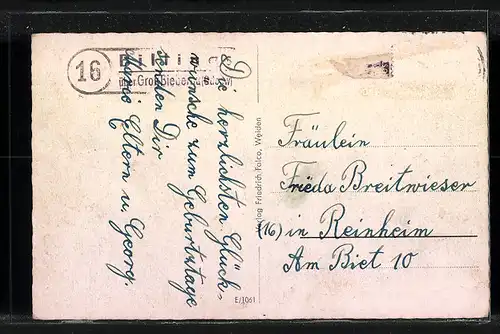 16
Die herzlichsten Glück-
wünsche zum Geburtstage
senden Dir
Deine Eltern u. Georg.
Verlag Friedrich Falco, Weiden
E/1061
Fräulein
Frieda Breitwieser
(16) in Reinheim
Am Biet 10